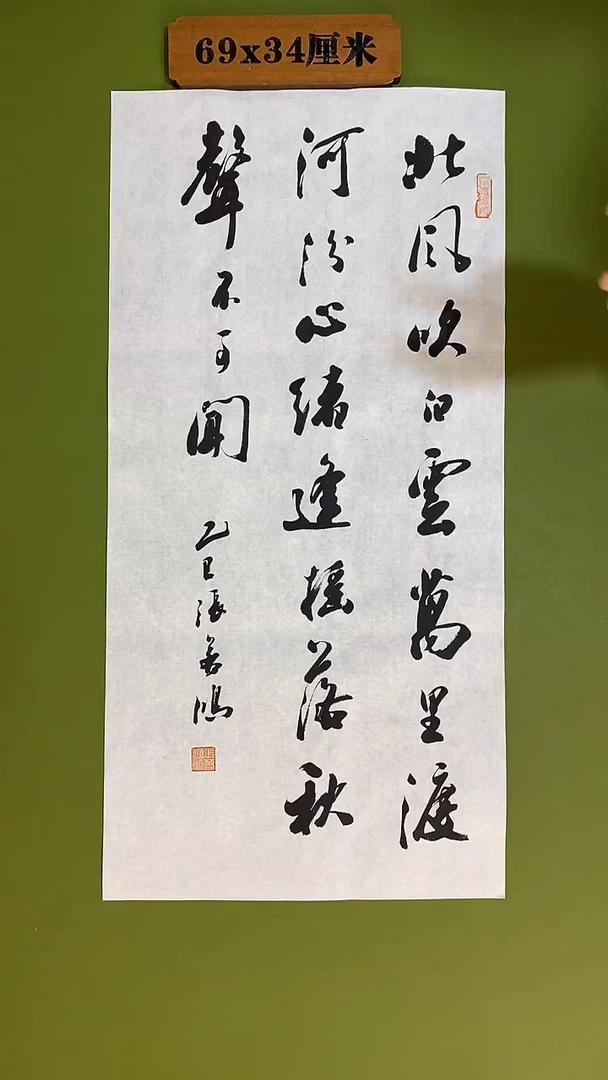 69x34厘米
北风吹白雲萬里渡
河汾心绪逢摇落秋
聲不可聞
乙巳張善鸿